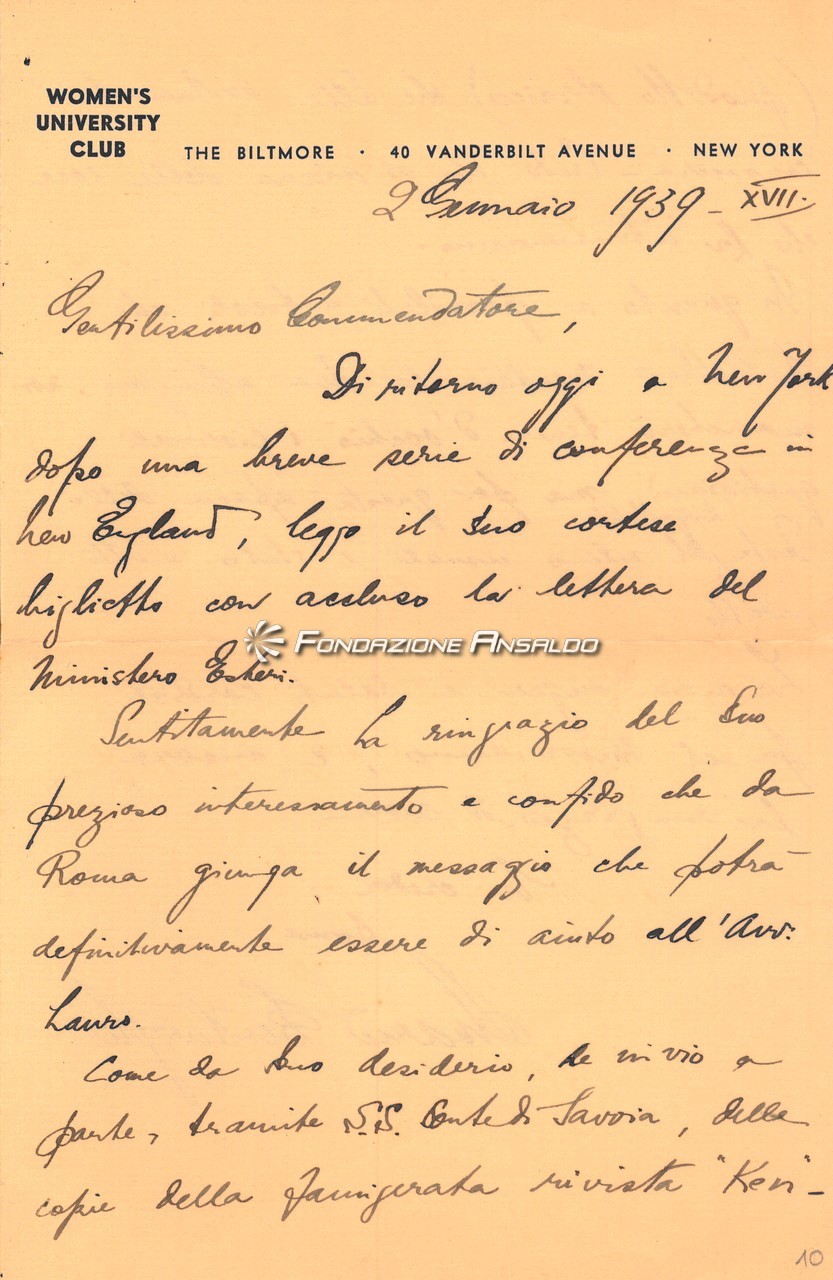 WOMEN'S
UNIVERSITY
CLUB
THE BILTMORE · 40 VANDERBILT AVENUE · NEW YORK
2 Gennaio 1939 - XVII.
Gentilissimo Commendatore,
Di ritorno oggi a New York
dopo una breve serie di conferenze in
New England, leggo il Suo cortese
biglietto con accluso la lettera del
FONDAZIONE ANSALDO
Ministero Esteri.
Sentitamente La ringrazio del Suo
prezioso interessamento e confido che da
Roma giunga il messaggio che potrà
definitivamente essere di aiuto all'Avv.
Lauro.
Come da Suo desiderio, Le invio a
parte, tramite S.S. Conte di Savoia, delle
copie della famigerata rivista "Ken" -
10